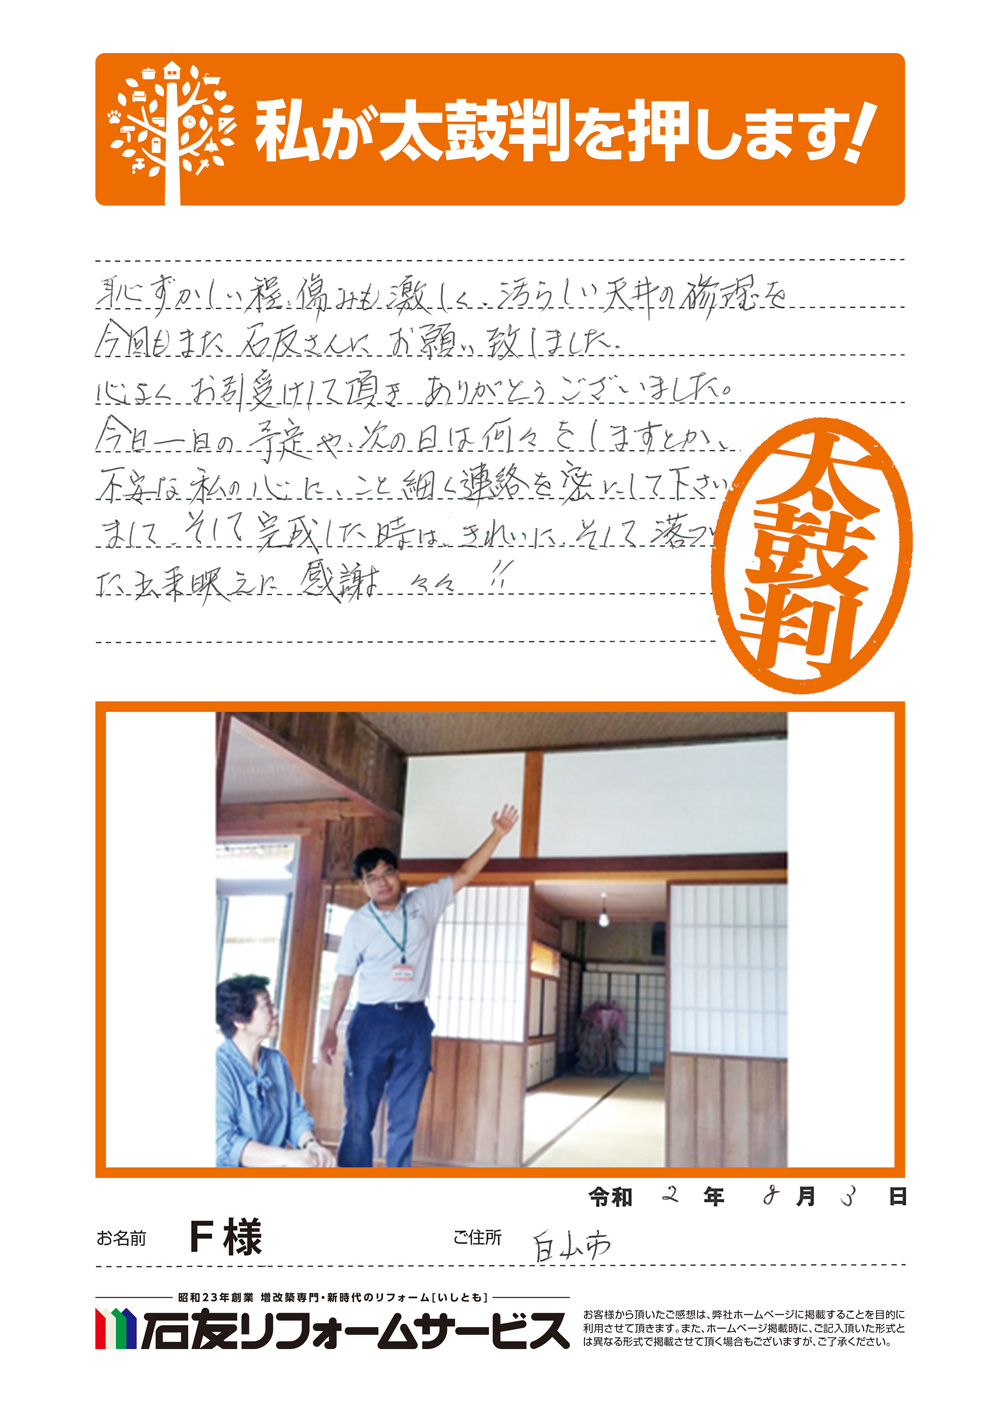 私が太鼓判を押します!
恥ずかしい程、傷みも激しく、汚らしい天井の修理を
今回もまた 石友さんに お願い致しました.
心よく お引受けして頂き ありがとうございました。
今日一日の 予定や、次の日は何々をしますとか、
不安な私の心に、こと細く連絡を密にして下さい
まして、そして完成した時は、きれいに、そして落つい
た出来映えに 感謝 々々 !!
太鼓判
令和 2 年 8 月 3 日
お名前 F様 ご住所 白山市
昭和23年創業 増改築専門・新時代のリフォーム[いしとも]
石友リフォームサービス
お客様から頂いたご感想は、弊社ホームページに掲載することを目的に
利用させて頂きます。また、ホームページ掲載時に、ご記入頂いた形式と
は異なる形式で掲載させて頂く場合もございますが、ご了承ください。